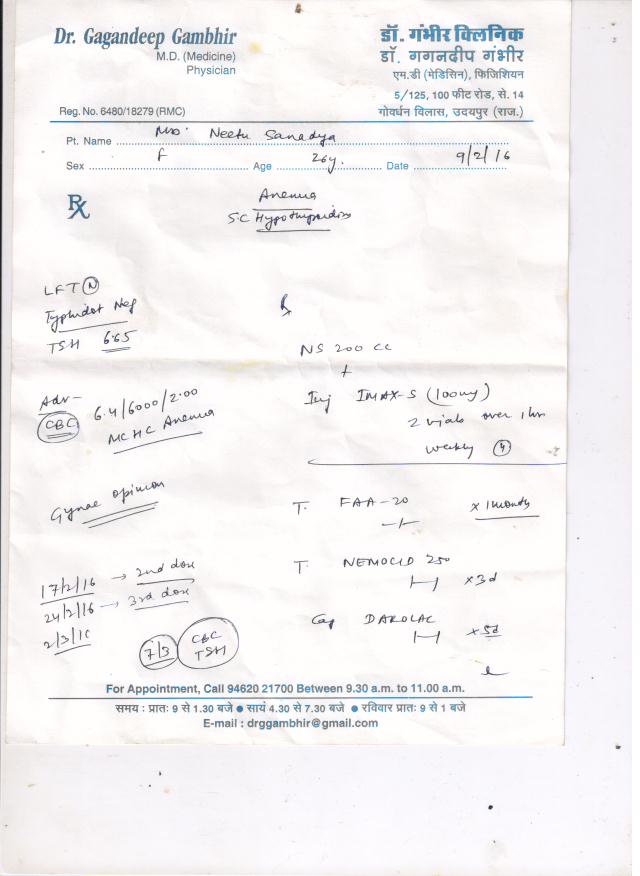 Dr. Gagandeep Gambhir
M.D. (Medicine)
Physician
Reg. No. 6480/18279 (RMC)
डॉ. गंभीर क्लिनिक
डॉ. गगनदीप गंभीर
एम.डी (मेडिसिन), फिजिशियन
5/125, 100 फीट रोड, से. 14
गोवर्धन विलास, उदयपुर (राज.)
Pt. Name Mrs. Neetu Sanadya
Sex F Age 26y. Date 9/2/16
Rx
Anemia
S.C Hypothyroidism
LFT (N)
Typhidot Neg
TSH 6.65
Adv-
CBC 6.4/6000/2.00
MCHC Anemia
Gynae opinion
17/2/16 → 2nd dose
24/2/16 → 3rd dose
2/3/16
7/3 CBC
TSH
Rx
NS 200 cc
+
Inj IMAX-S (100mg)
2 vials over 1 hr
weekly (4)
T. FAA-20 x 1 month
T. NEMOCID 250
x 3d
Cap DAROLAC
x 5d
For Appointment, Call 94620 21700 Between 9.30 a.m. to 11.00 a.m.
समय : प्रातः 9 से 1.30 बजे ● सायं 4.30 से 7.30 बजे ● रविवार प्रातः 9 से 1 बजे
E-mail : drggambhir@gmail.com